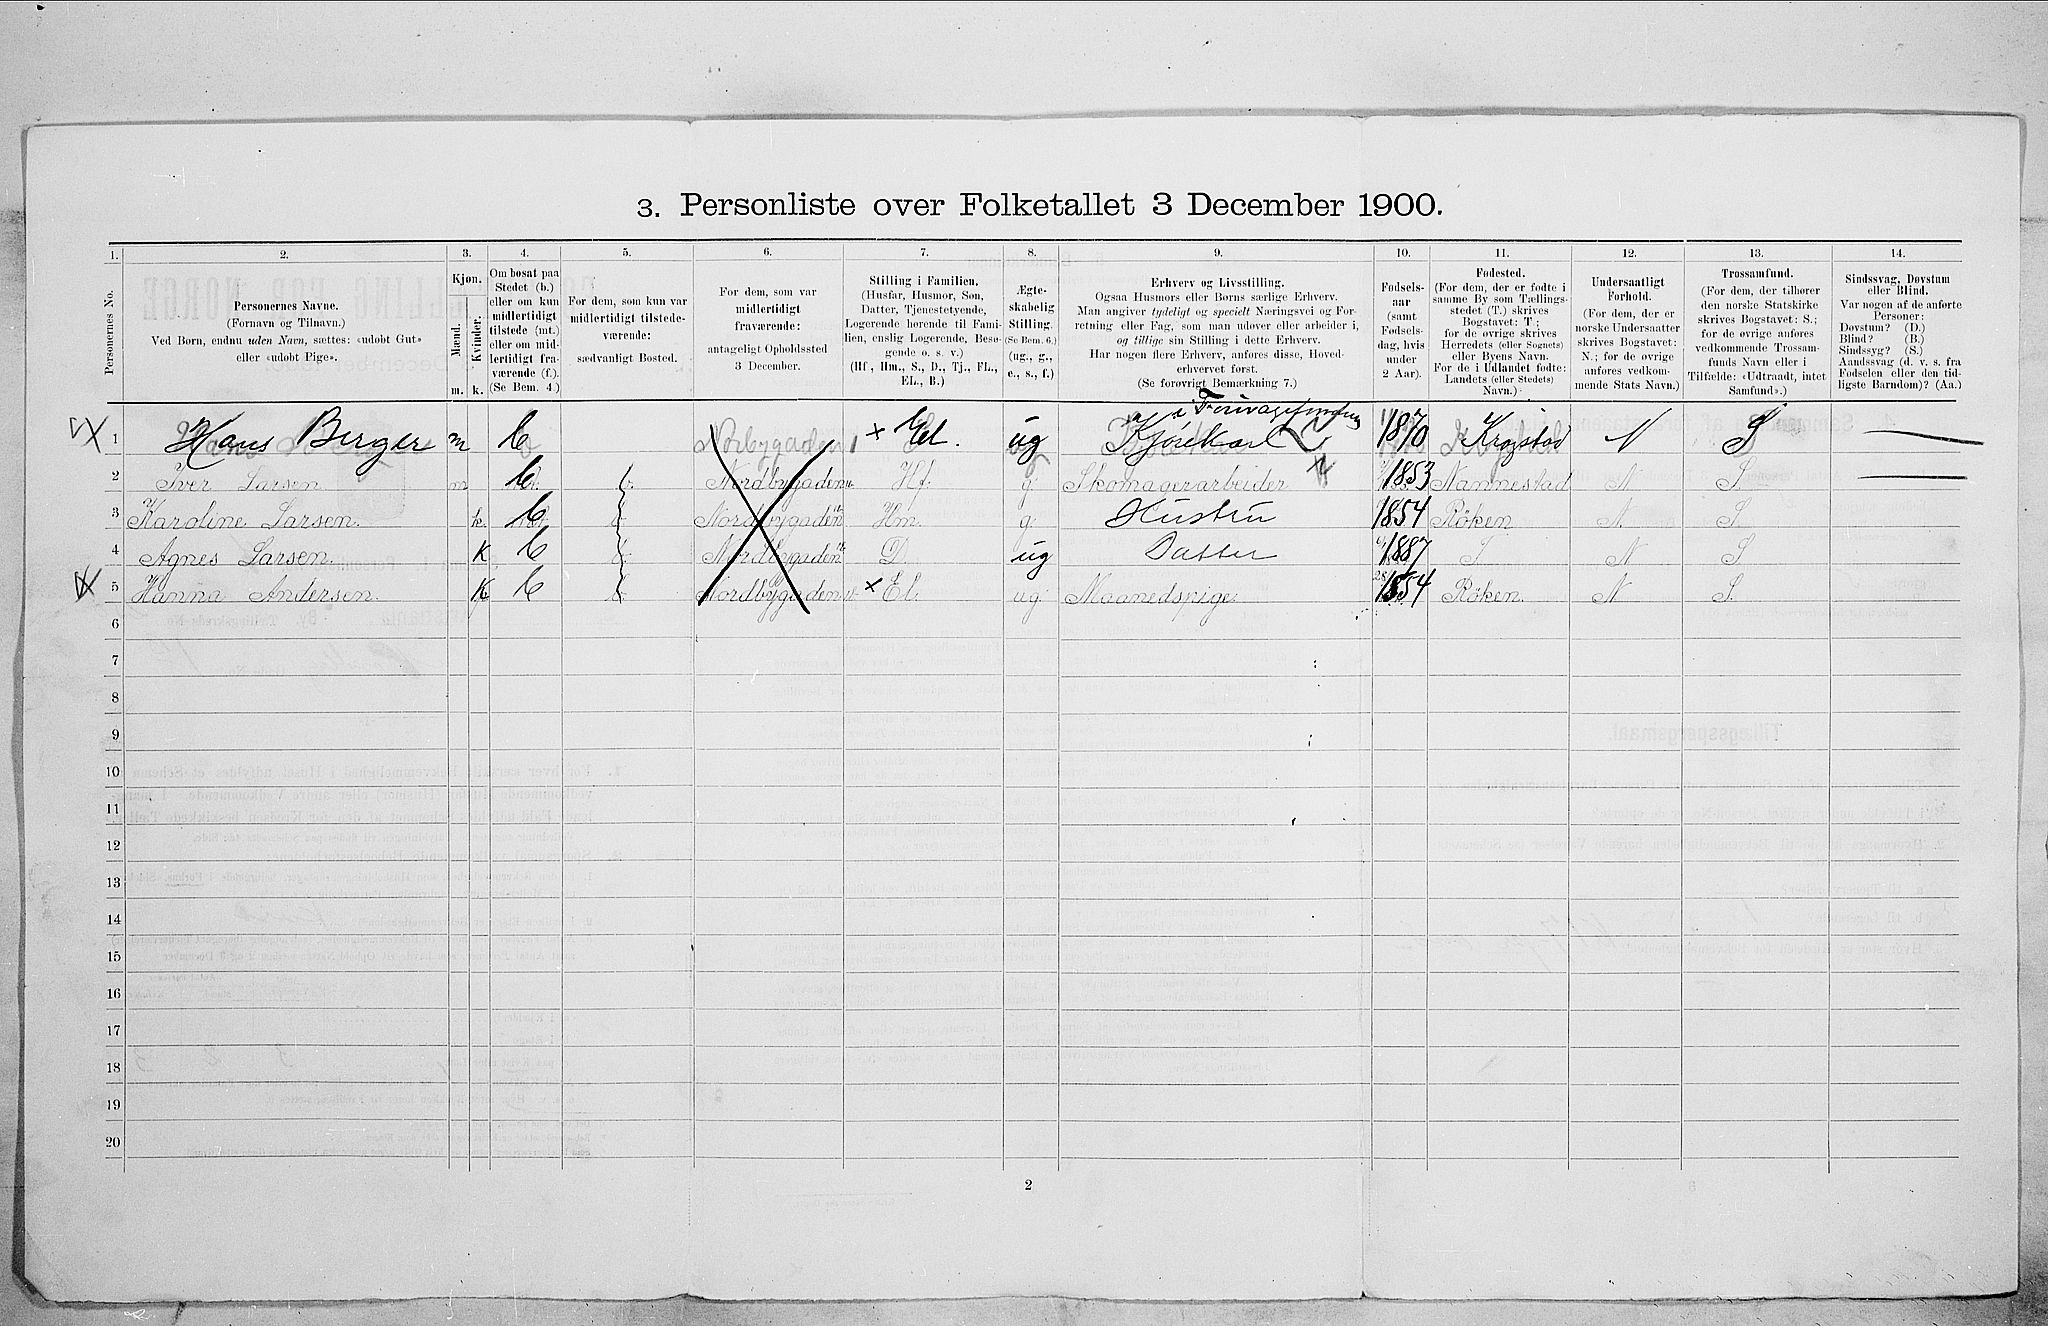 3. Personliste over Folketallet 3 December 1900.
1. 2. 3. 4. 5. 6. 7. 8. 9. 10. 11. 12. 13. 14.
Personernes No.
Personernes Navne.
(Fornavn og Tilnavn.)
Ved Børn, endnu uden Navn, sættes: «udøbt Gut»
eller «udøbt Pige».
Kjøn.
Mænd.
Kvinder.
m. k.
Om bosat paa
Stedet (b.)
eller om kun
midlertidigt
tilstede (mt.)
eller om mid-
lertidigt fra-
værende (f.).
(Se Bem. 4.)
For dem, som kun var
midlertidigt tilstede-
værende:
sædvanligt Bosted.
For dem, som var
midlertidigt
fraværende:
antageligt Opholdssted
3 December.
Stilling i Familien.
(Husfar, Husmor, Søn,
Datter, Tjenestetyende,
Logerende hørende til Fami-
lien, enslig Logerende, Besø-
gende o. s. v.)
(Hf., Hm., S., D., Tj., FL.,
EL., B.)
Ægte-
skabelig
Stilling.
(Se Bem. 6.)
(ug., g.,
e., s., f.)
Erhverv og Livsstilling.
Ogsaa Husmors eller Børns særlige Erhverv.
Man angiver tydeligt og specielt Næringsvei og For-
retning eller Fag, som man udøver eller arbeider i,
og tillige sin Stilling i dette Erhverv.
Har nogen flere Erhverv, anføres disse, Hoved-
erhvervet først.
(Se forøvrigt Bemærkning 7.)
Fødsels-
aar
(samt
Fødsels-
dag, hvis
under
2 Aar).
Fødested.
(For dem, der er fødte i
samme By som Tællings-
stedet (T.) skrives
Bogstavet: T.;
for de øvrige skrives
Herredets (eller Sognets)
eller Byens Navn.
For de i Udlandet fødte:
Landets (eller Stedets)
Navn.)
Undersaatligt
Forhold.
(For dem, der er
norske Undersaatter
skrives Bogstavet:
N.; for de øvrige
anføres vedkom-
mende Stats Navn.)
Trossamfund.
(For dem, der tilhører
den norske Statskirke
skrives Bogstavet: S.;
for de øvrige anføres
vedkommende Trossam-
funds Navn eller i
Tilfælde: «Udtraadt, intet
Samfund».)
Sindssvag, Døvstum
eller Blind.
Var nogen af de anførte
Personer:
Døvstum? (D.)
Blind? (B.)
Sindssyg? (S.)
Aandssvag (d. v. s. fra
Fødselen eller den tid-
ligste Barndom)? (Aa.)
1 Hans Berger m b Norbygaden El. ug Kjørekarl 1870 Krogstad N S
2 Iver Larsen m b b. Nordbygaden Hf. g. Skomagerarbeider 1853 Nannestad N S
3 Karoline Larsen. k. b b Nordbygaden Hm. g. Hustru 1854 Røken N. S
4 Agnes Larsen. K b b Nordbygaden D. ug Datter 1887 T N S
5 Hanna Andersen. K b b Nordbygaden El. ug. Maanedspige. 1854 Røken. N S.
6
7
8
9
10
11
12
13
14
15
16
17
18
19
20
2